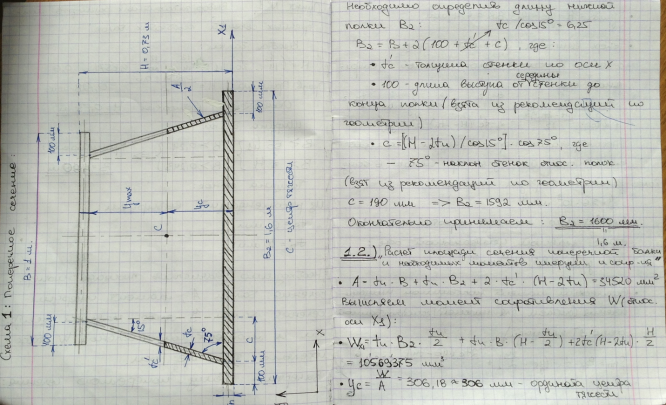 Схема 1: Поперечное сечение
B = 1 м
H = 0,75 м
100 мм
100 мм
Ymax
Yc
A/2
C
15°
75°
tc
tc'
100 мм
100 мм
c
B₂ = 1,6 м
C - центр тяжести
X1
x
h
Необходимо определить длину нижней
полки B₂: tc/cos15° = 6,25
B₂ = B + 2(100 + tc' + c), где:
• tc' - толщина стенки по оси x
середины
• 100 - длина выпуска от стенки до
конца полки (взята из рекомендаций по
геометрии)
• c = [(H - 2tп)/cos15°] · cos75°, где
– 75° - наклон стенок относ. полок
(взят из рекомендаций по геометрии)
c = 190 мм => B₂ = 1592 мм.
Окончательно принимаем: B₂ = 1600 мм.
1,6 м.
1.2.) „Расчёт площади сечения поперечной балки
и необходимых моментов инерции и сопр-ия"
• A = tп · B + tп · B₂ + 2 · tc' · (H - 2tп) = 34520 мм²
Вычисляем момент сопротивления W (относ.
оси X1):
• W = tп · B₂ · tп/2 + tп · B · (H - tп/2) + 2tc'(H - 2tп) · H/2
= 10569375 мм³
• Yc = W/A = 306,18 ≈ 306 мм - ордината центра
тяжести